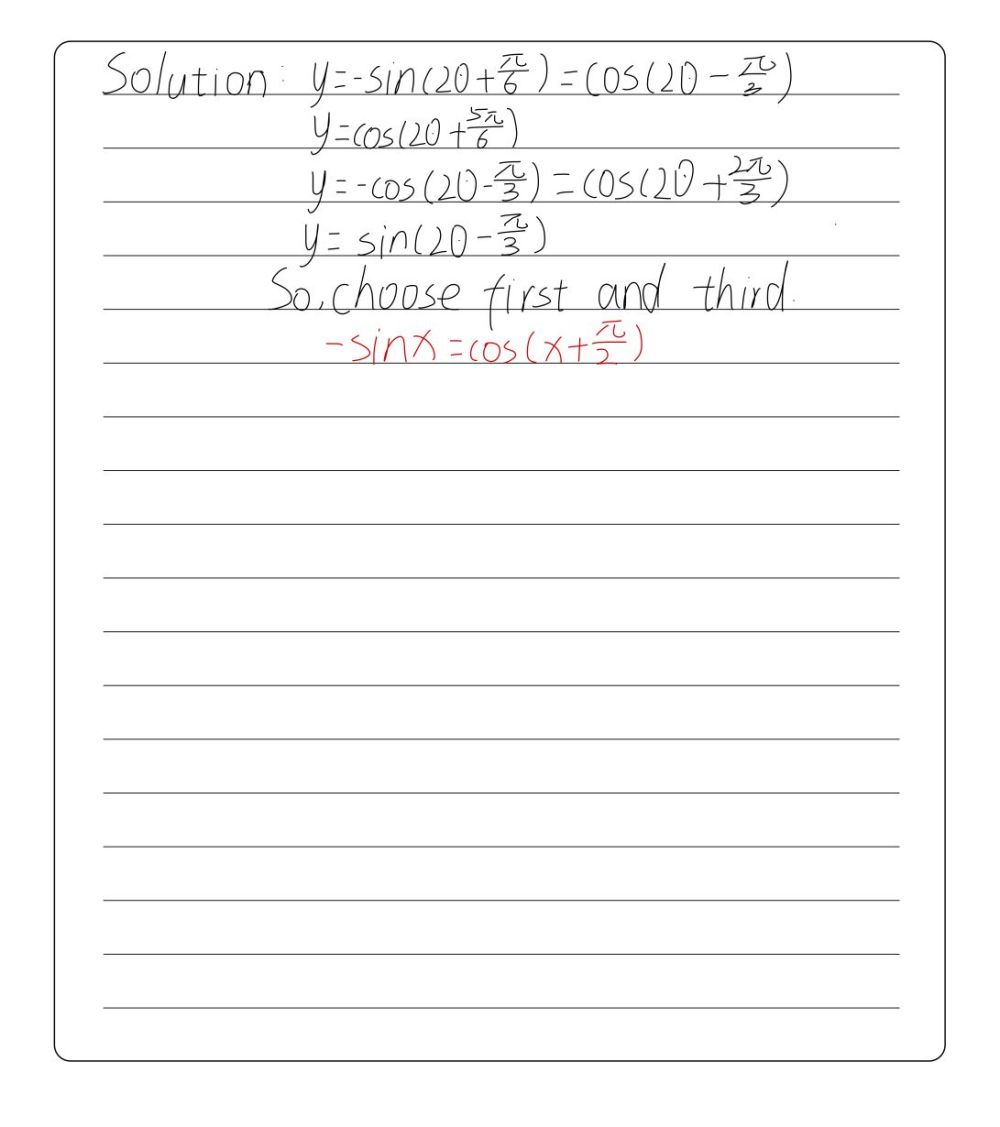 Solution: y=-sin(2θ+π/6)=cos(2θ-π/3)
y=cos(2θ+5π/6)
y=-cos(2θ-π/3)=cos(2θ+2π/3)
y=sin(2θ-π/3)
So,choose first and third.
-sinx=cos(x+π/2)